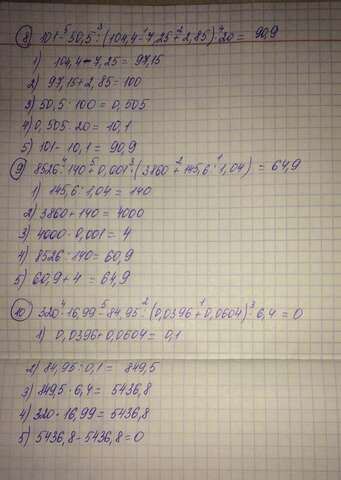 8) 101 - 50,5 : (104,4 - 7,25 + 2,85) · 20 = 90,9
1) 104,4 - 7,25 = 97,15
2) 97,15 + 2,85 = 100
3) 50,5 : 100 = 0,505
4) 0,505 · 20 = 10,1
5) 101 - 10,1 = 90,9
9) 8526 : 140 + 0,001 · (3860 + 145,6 : 1,04) = 64,9
1) 145,6 : 1,04 = 140
2) 3860 + 140 = 4000
3) 4000 · 0,001 = 4
4) 8526 : 140 = 60,9
5) 60,9 + 4 = 64,9
10) 320 · 16,99 - 84,95 : (0,0396 + 0,0604) · 6,4 = 0
1) 0,0396 + 0,0604 = 0,1
2) 84,95 : 0,1 = 849,5
3) 849,5 · 6,4 = 5436,8
4) 320 · 16,99 = 5436,8
5) 5436,8 - 5436,8 = 0